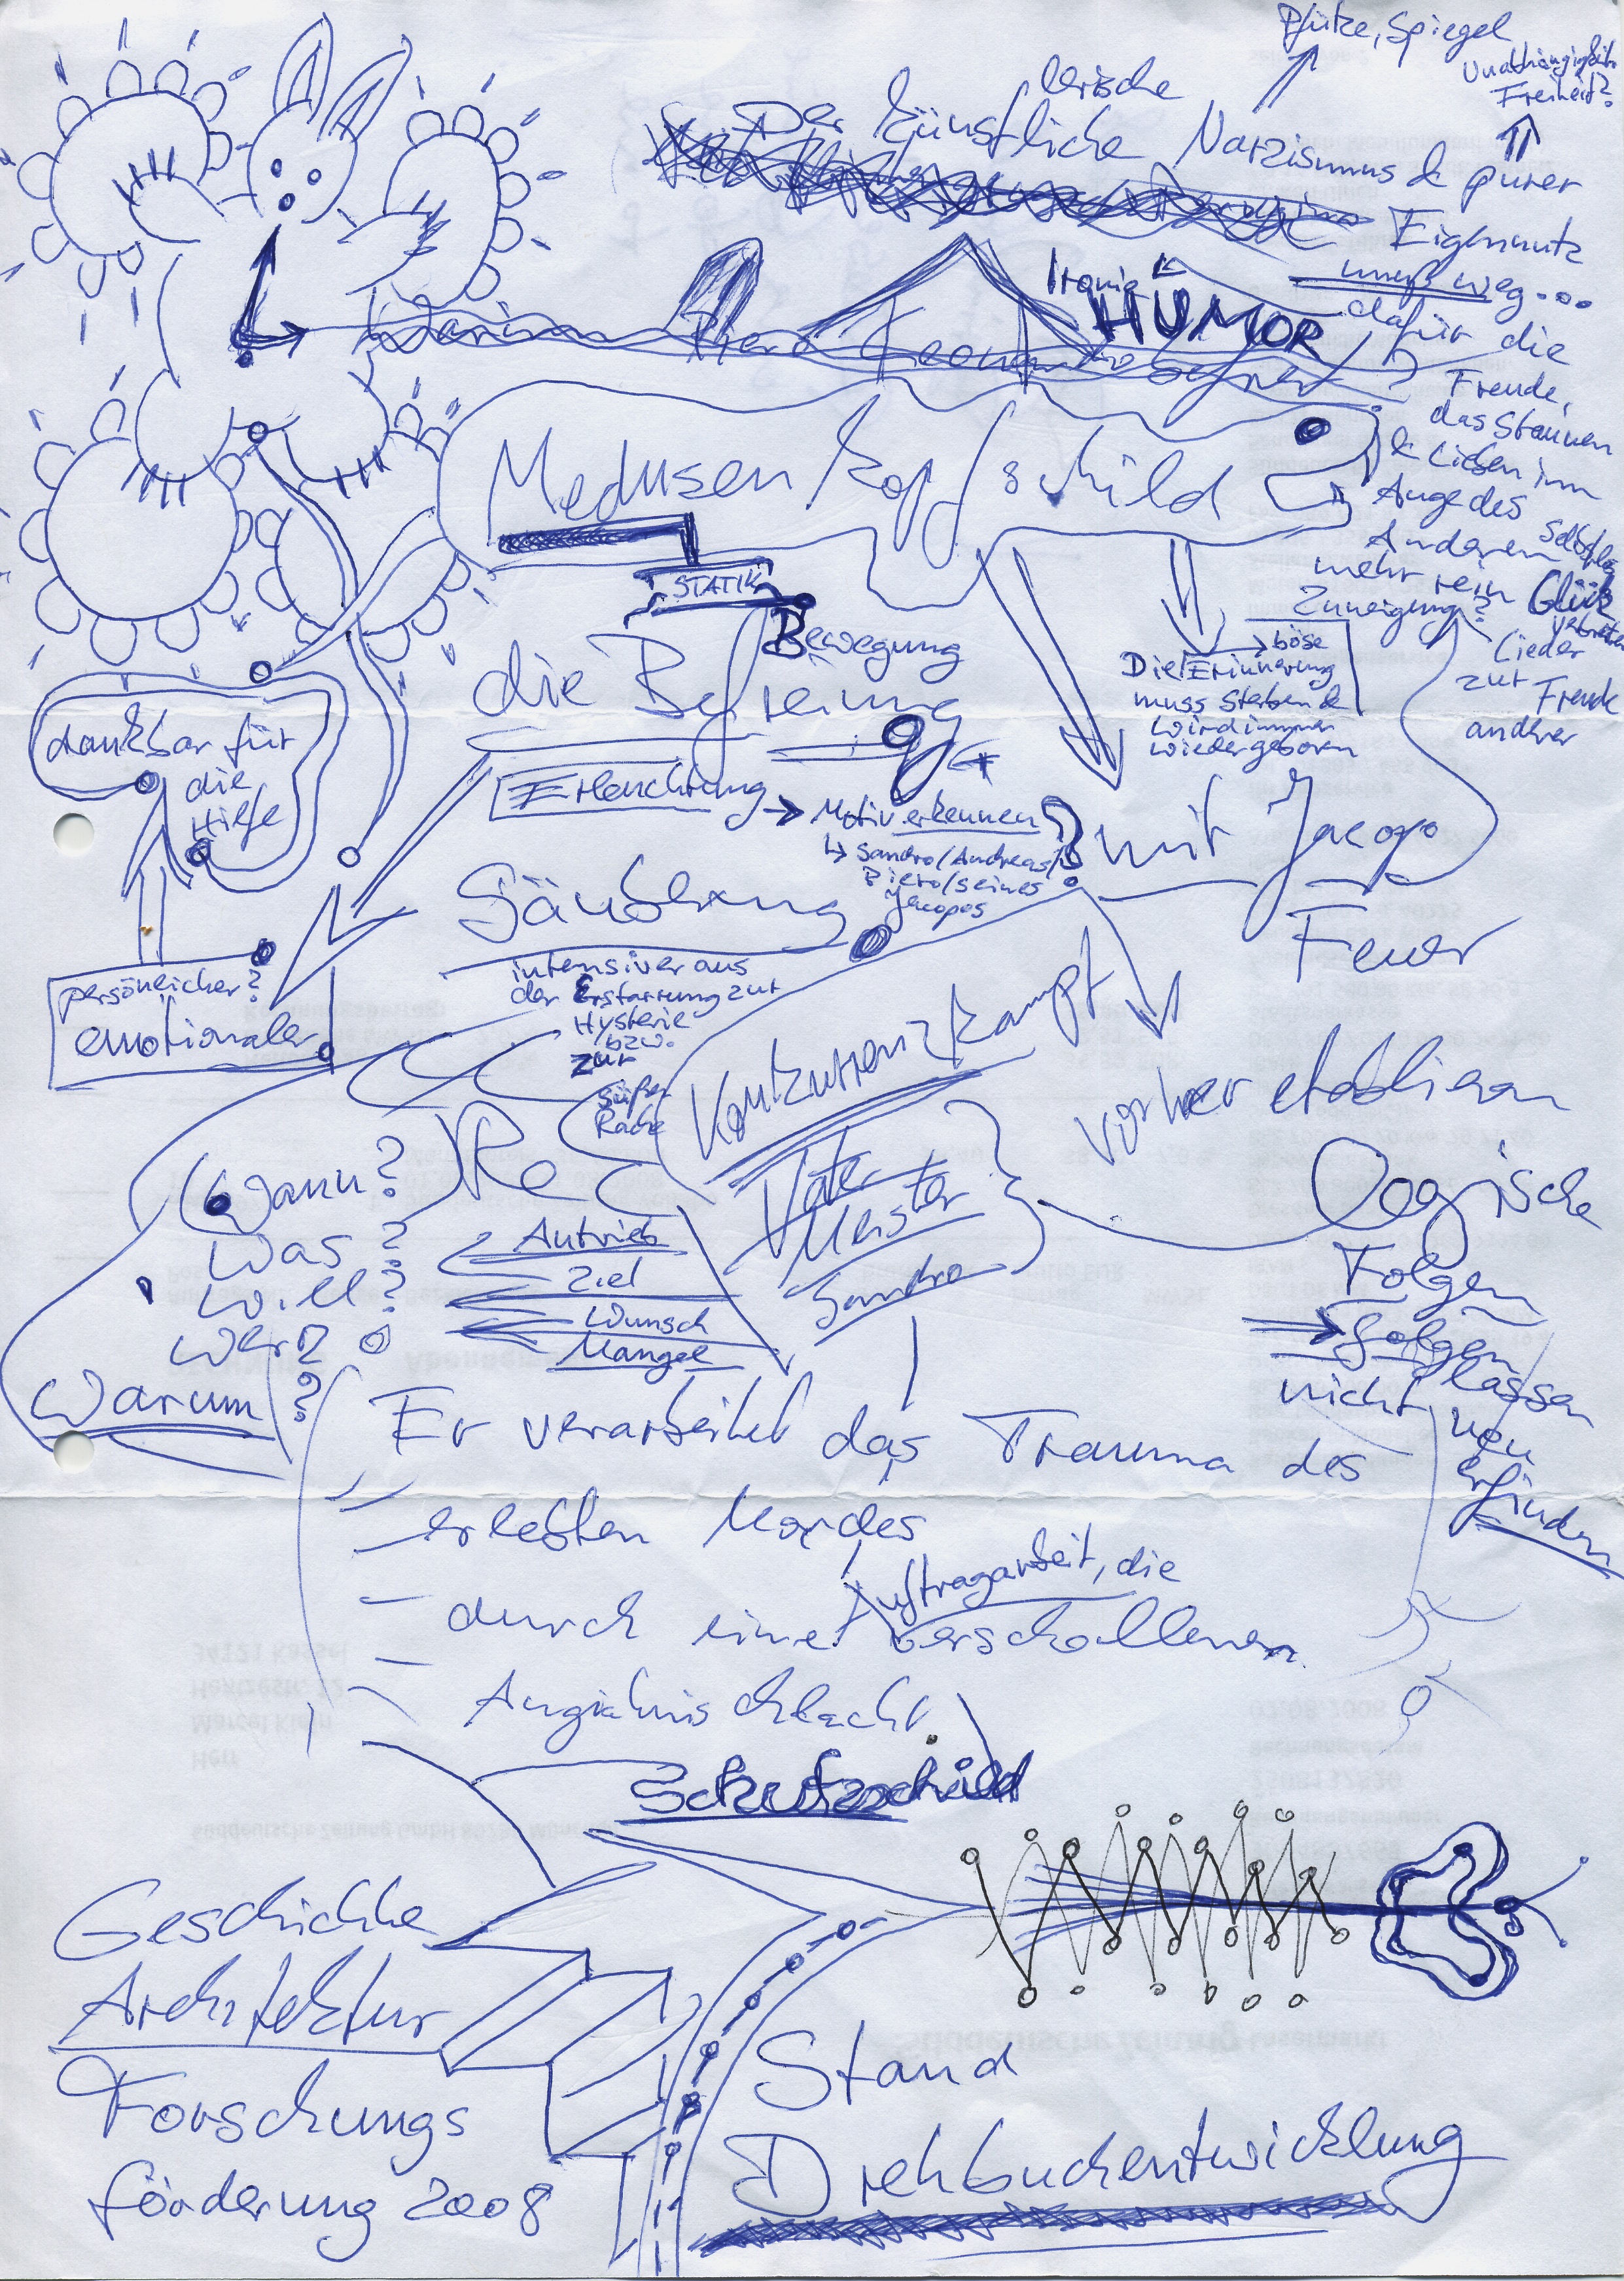 Pfütze, Spiegel
Unabhängigkeit
Freiheit?
lerische
Der Künstliche Narzismus & purer
Eigennutz
muß weg...
Ironie
HUMOR
dafür die
Freude,
das Staunen
& Lieben im
Auge des
Anderen
mehr rein
Zuneigung?
Glück
Lieder
zur Freude
andrer
Piero
Medusenkopfschild
STATIK
Bewegung
die Befreiung
böse
Die Erinnerung
muss sterben &
wird immer
wiedergeboren
dankbar für
die
Hilfe
Erleuchtung
Motiv erkennen
↳ Sandro/Andreas/
Piero/seines
Jacopos
?
mit Jacopo
Feuer
Säuberung
intensiver aus
der Erstarrung zur
Hysterie
bzw.
zur
süßen
Rache
persönlicher?
emotionaler
Konkurrenzkampf
vorher etablieren
Re
Vater
Meister
Sandro
Logische
Folgen
Folgen
lassen
nicht neu
erfinden
Wann?
Was?
Will?
Wer?
Warum?
Antrieb
Ziel
Wunsch
Mangel
Er verarbeitet das Trauma des
erlebten Mordes
durch eine Auftragarbeit, die
verschollenen
Angiarischlacht
Schutzschild
Geschichte
Architektur
Forschungs
förderung 2008
Stand
Drehbuchentwicklung